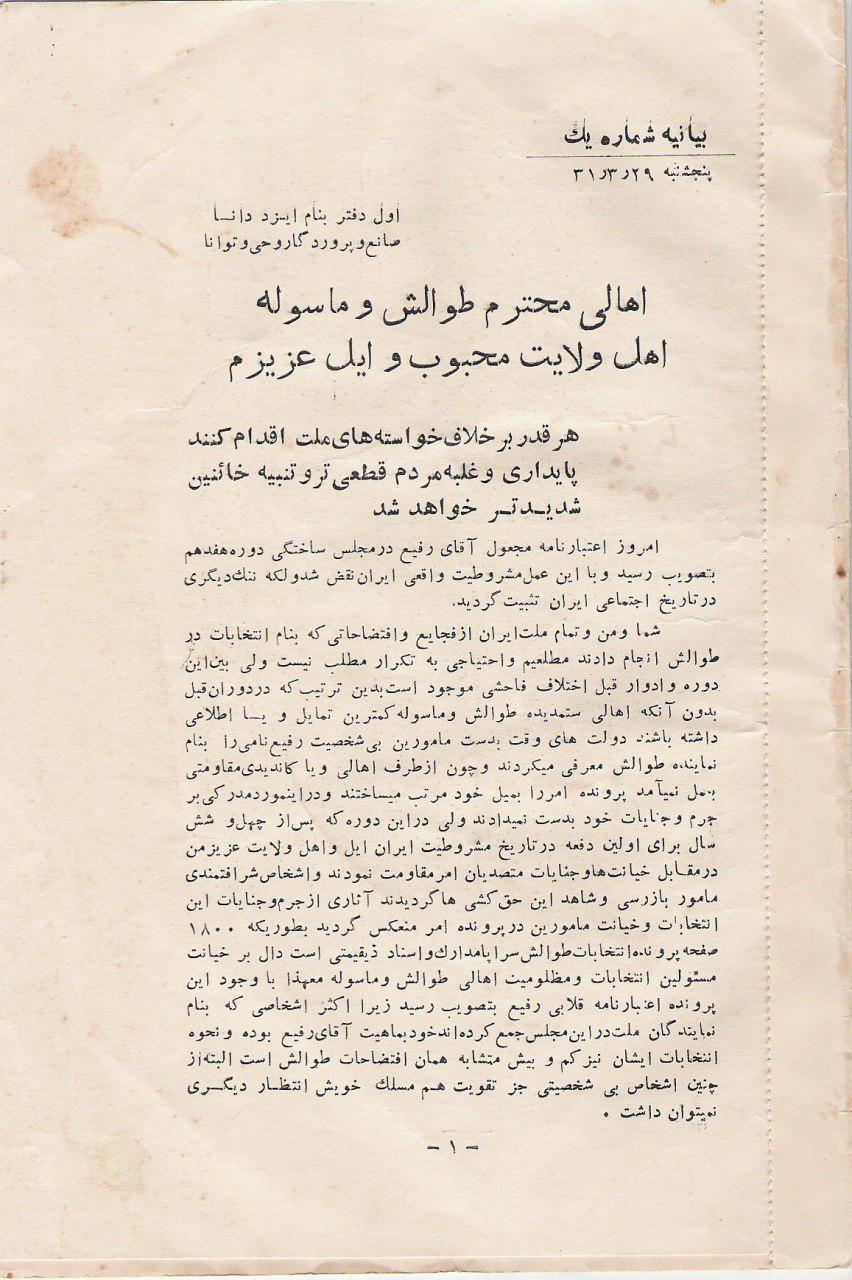 بیانیه شماره یك
پنجشنبه ۳۱ر۳ر۲۹
اول دفتر بنام ایـزد دانـا
صانع و پروردگار وحی و توانا
اهالی محترم طوالش و ماسوله
اهل ولایت محبوب و ایل عزیزم
هر قدر بر خلاف خواسته‌های ملت اقدام کنند
پایداری و غلبه مردم قطعی تر و تنبیه خائنین
شدیـدتـر خواهد شد
امروز اعتبارنامه مجعول آقای رفیع در مجلس ساختگی دوره هفدهم
بتصویب رسید و با این عمل مشروطیت واقعی ایران نقض شد و لکه ننك دیگری
در تاریخ اجتماعی ایران تثبیت گردید.
شما و من و تمام ملت ایران از فجایع و افتضاحاتی که بنام انتخابات در
طوالش انجام دادند مطلعیم و احتیاجی به تکرار مطلب نیست ولی بین این
دوره و ادوار قبل اختلاف فاحشی موجود است بدین ترتیب که در دوران قبل
بدون آنکه اهالی ستمدیده طوالش و ماسوله کمترین تمایل و یـا اطلاعی
داشته باشند دولت های وقت بدست مامورین بی شخصیت رفیع نامی را بنام
نماینده طوالش معرفی میکردند و چون از طرف اهالی و یا کاندیدی مقاومتی
بعمل نمیآمد پرونده امر را بمیل خود مرتب میساختند و در اینمورد مدرکی بر
جرم و جنایات خود بدست نمیدادند ولی در این دوره که پس از چهل و شش
سال برای اولین دفعه در تاریخ مشروطیت ایران ایل و اهل ولایت عزیز من
در مقـابل خیانت‌ها و جنایات متصدیان امر مقاومت نمودند و اشخاص شرافتمندی
مامور بازرسی و شاهد این حق کشی ها گردیدند آثاری از جرم و جنایات این
انتخابات و خیانت مامورین در پرونده امر منعکس گردید بطوریکه ۱۸۰۰
صفحه پرونده انتخابات طوالش سراپا مدارك و اسناد ذیقیمتی است دال بر خیانت
مسئولین انتخابات و مظلومیت اهالی طوالش و ماسوله معهذا با وجود این
پرونده اعتبارنامه قلابی رفیع بتصویب رسید زیرا اکثر اشخاصی که بنام
نمایندگان ملت در این مجلس جمع کرده‌اند خود بماهیت آقای رفیع بوده و نحوه
انتخابات ایشان نیز کم و بیش متشابه همان افتضاحات طوالش است البته از
چنین اشخاص بی شخصیتی جز تقویت هـم مسلك خویش انتظـار دیگـری
نمیتوان داشت .
- ۱ -